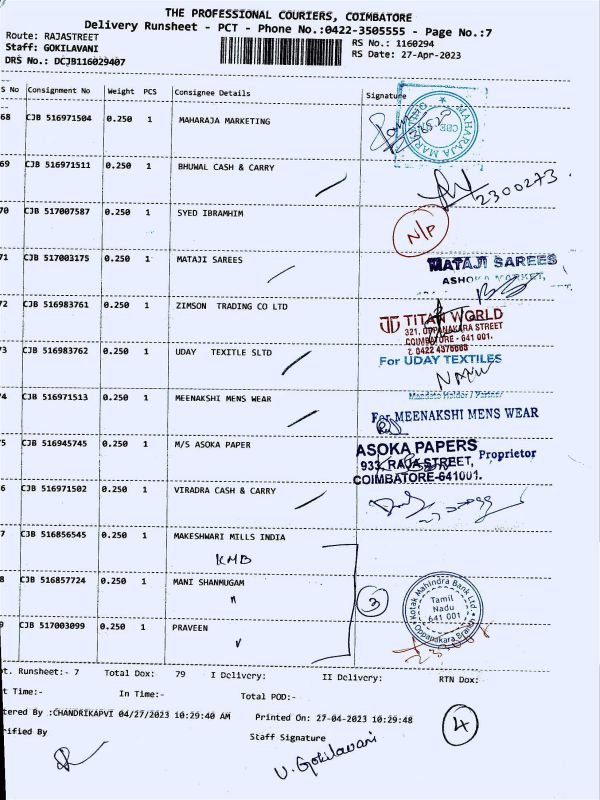 THE PROFESSIONAL COURIERS, COIMBATORE
Delivery Runsheet - PCT - Phone No.:0422-3505555 - Page No.:7
Route: RAJASTREET
RS No.: 1160294
Staff: GOKILAVANI
RS Date: 27-Apr-2023
DRS No.: DCJB116029407
S No Consignment No Weight PCS Consignee Details Signature
68 CJB 516971504 0.250 1 MAHARAJA MARKETING
CBE
69 CJB 516971511 0.250 1 BHUWAL CASH & CARRY
2300273
70 CJB 517007587 0.250 1 SYED IBRAMHIM N/P
71 CJB 517003175 0.250 1 MATAJI SAREES
MATAJI SAREES
ASHOKA MARKET,
72 CJB 516983761 0.250 1 ZIMSON TRADING CO LTD
TITAN WORLD
321, OPPANAKARA STREET
COIMBATORE - 641 001.
73 CJB 516983762 0.250 1 UDAY TEXITLE SLTD
For UDAY TEXTILES
74 CJB 516971513 0.250 1 MEENAKSHI MENS WEAR
Mandate Holder / Partner
For MEENAKSHI MENS WEAR
75 CJB 516945745 0.250 1 M/S ASOKA PAPER
ASOKA PAPERS
Proprietor
933, RAJA STREET,
COIMBATORE-641001.
6 CJB 516971502 0.250 1 VIRADRA CASH & CARRY
7 CJB 516856545 0.250 1 MAKESHWARI MILLS INDIA
KMB
8 CJB 516857724 0.250 1 MANI SHANMUGAM
"
3
Kotak Mahindra Bank Ltd.
Tamil
Nadu
641 001
Oppapakara Branch
9 CJB 517003099 0.250 1 PRAVEEN
nt. Runsheet:- 7 Total Dox: 79 I Delivery: II Delivery: RTN Dox:
t Time:- In Time:- Total POD:-
tered By :CHANDRIKAPVI 04/27/2023 10:29:40 AM Printed On: 27-04-2023 10:29:48
4
rified By
Staff Signature
V. Gokilavani